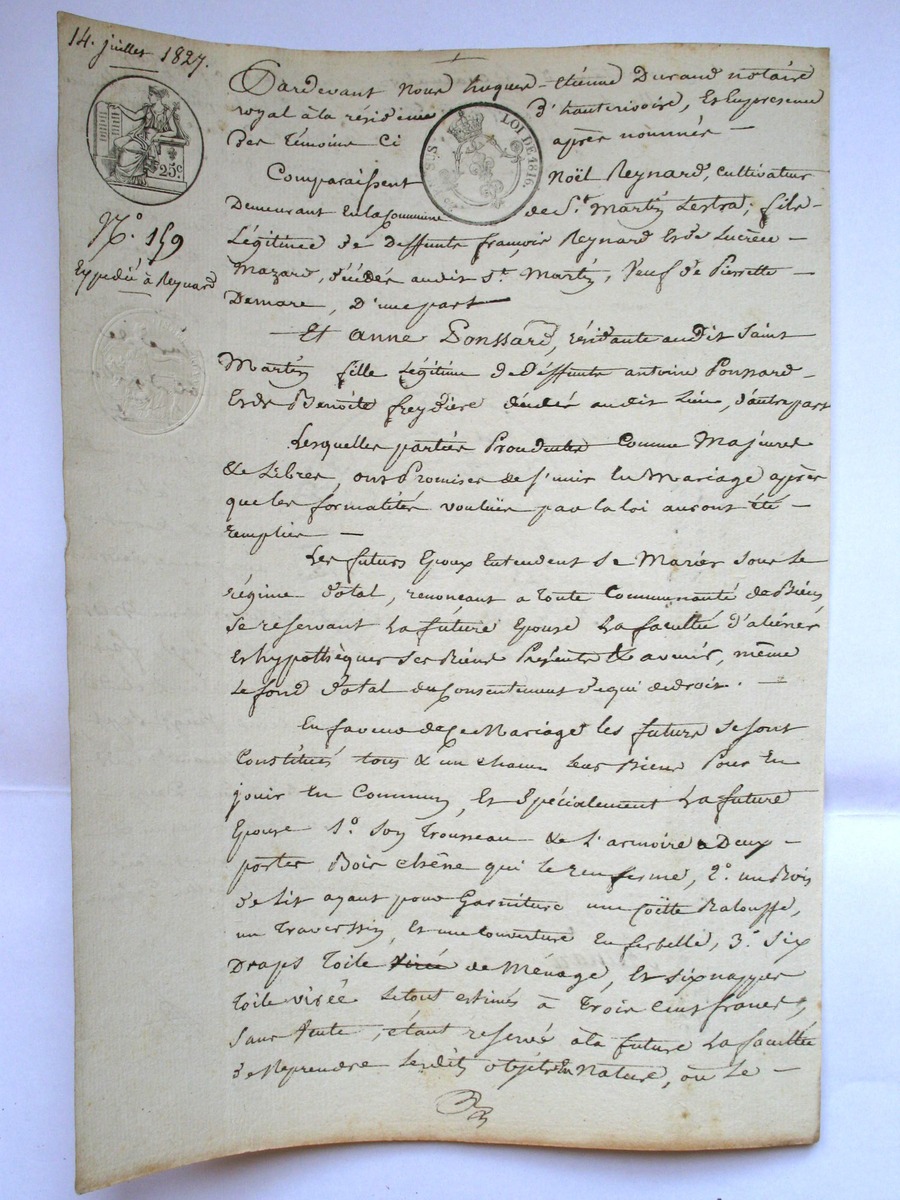 14. juillet 1827.
25c.
LOI DE 1816.
N.º 159
Expédié à Reynard
Pardevant Nous hugues-étienne Durand notaire
royal à la résidence d'hauterivoire, et En presence
des Témoins Ci après nommés —
Comparaissent Noël Reynard, cultivateur
Demeurant En la Commune de St. Martin Lestra, fils-
Légitime de deffunts françois Reynard Et de Lucrèce -
Mazard, décédés audit St. Martin, Veuf de Pierrette -
Demare, D'une part —
Et anne Ponssard, résidante audit Saint
Martin fille Légitime de deffunts antoine Ponssard -
Et de Benoite freydière décédés audit Lieu, d'autre part
Lesquelles parties Procedantes comme Majeures
& Libres, ont Promises de s'unir En Mariage après
que les formalités voulües par la loi auront été -
remplies —
Les futurs Epoux Entendent se Marier sous le
régime dotal, renonçant a toute Communauté de Biens
se reservant La future Epouse La faculté d'aliéner
Et hypothèquer ses Biens Présents & avenir, même
Le fond dotal du Consentement de qui de droit. —
En faveur de ce Mariage les futurs se sont
Constitués tous & un chacun leurs Biens Pour En
jouir En Commun, Et Spécialement La future
Epouse 1º. son Trousseau & L'armoire a Deux -
portes Bois chêne qui le renferme, 2º. un Bois
de lit ayant pour Garniture une Coëtte Balouffe,
un Traverssin, Et une couverture En ferbelle, 3º. six
Draps Toile virée de Menage, Et six nappes
Toile virée Le tout estimés à Trois Cent francs,
sans Vente, étant reservée à la future La faculté
de Reprendre Lesdits objets En Nature, ou Le —